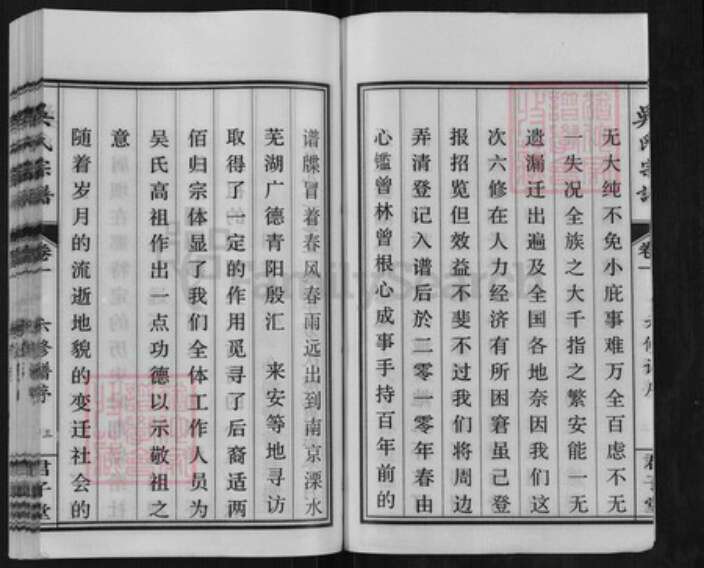 无大纯不免小庇事难万全百虑不无
一失况全族之大千指之繁安能一无
遗漏迁出遍及全国各地奈因我们这
次六修在人力经济有所困窘虽己登
报招览但效益不斐不过我们将周边
弄清登记入谱后於二零一零年春由
心鑑曾林曾根心成事手持百年前的
谱牒冒着春风春雨远出到南京溧水
芜湖广德青阳殷汇 来安等地寻访
取得了一定的作用觅寻了后裔适两
佰归宗体显了我们全体工作人员为
吴氏高祖作出一点功德以示敬祖之
意
随着岁月的流逝地貌的变迁社会的
吴氏宗谱 卷一 六修谱序 三 君子堂